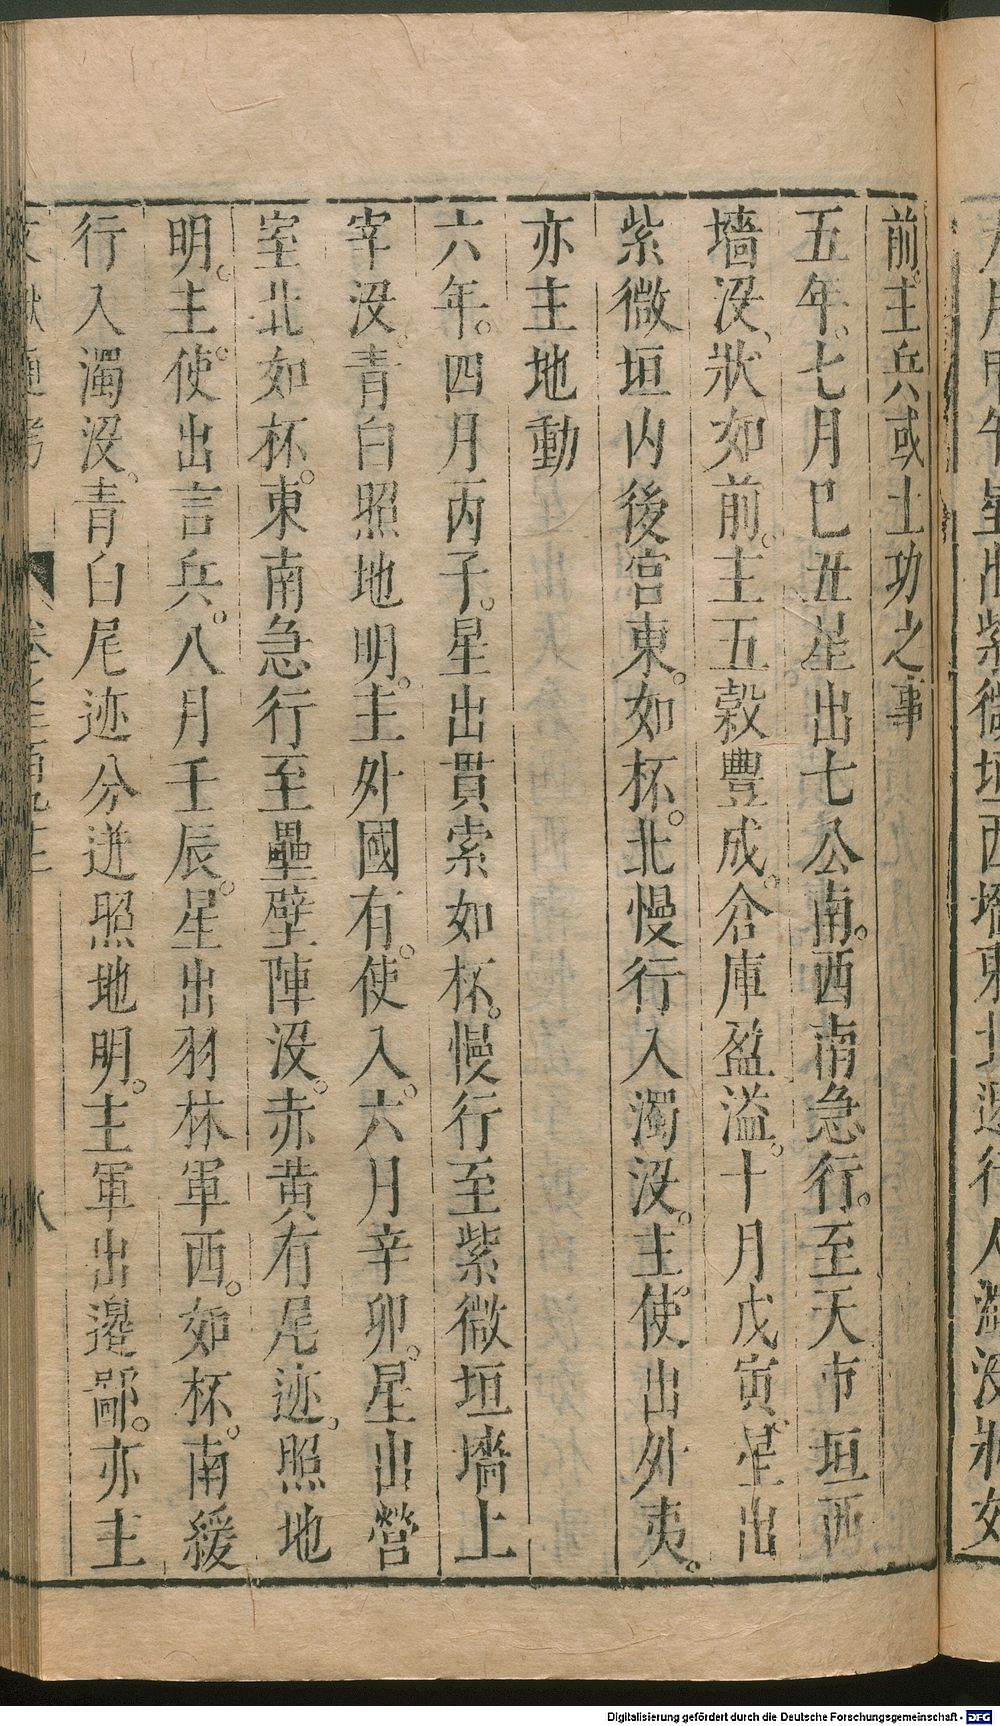 月 星出紫微垣西墻東北速行入濁沒狀如
前主兵或土功之事
五年。七月巳丑星出七公南。西南急行。至天市垣西
墻沒、狀如前。主五穀豐成。倉庫盈溢。十月戊寅。星出
紫微垣内後宫東。如杯。北慢行入濁沒。主使出外夷。
亦主地動
六年。四月丙子。星出貫索如杯。慢行至紫微垣墻上
宰沒。青白照地明。主外國有。使入。六月辛卯。星出營
室北如杯。東南急行至壘壁陣沒。赤黄有尾迹。照地
明。主。使出言兵。八月壬辰。星出羽林軍西。如杯。南緩
行入濁沒、青白尾迹分迸照地明。主軍出邉鄙。亦主
通考 卷之二百九十 八
Digitalisierung gefördert durch die Deutsche Forschungsgemeinschaft - DFG